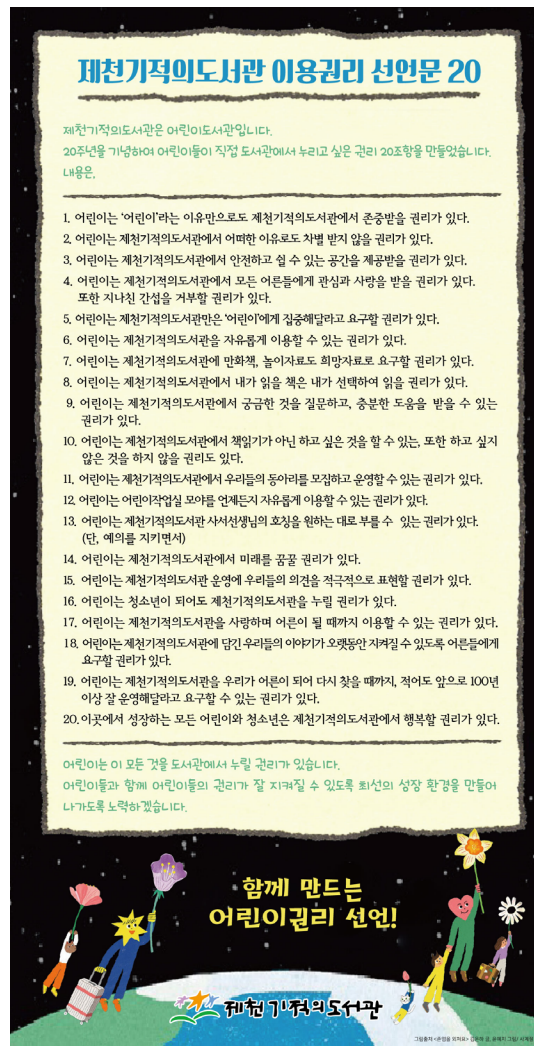 제천기적의도서관 이용권리 선언문 20
제천기적의도서관은 어린이도서관입니다.
20주년을 기념하여 어린이들이 직접 도서관에서 누리고 싶은 권리 20조항을 만들었습니다.
내용은,
1. 어린이는 ‘어린이’라는 이유만으로도 제천기적의도서관에서 존중받을 권리가 있다.
2. 어린이는 제천기적의도서관에서 어떠한 이유로도 차별 받지 않을 권리가 있다.
3. 어린이는 제천기적의도서관에서 안전하고 쉴 수 있는 공간을 제공받을 권리가 있다.
4. 어린이는 제천기적의도서관에서 모든 어른들에게 관심과 사랑을 받을 권리가 있다.
또한 지나친 간섭을 거부할 권리가 있다.
5. 어린이는 제천기적의도서관만은 ‘어린이’에게 집중해달라고 요구할 권리가 있다.
6. 어린이는 제천기적의도서관을 자유롭게 이용할 수 있는 권리가 있다.
7. 어린이는 제천기적의도서관에 만화책, 놀이자료도 희망자료로 요구할 권리가 있다.
8. 어린이는 제천기적의도서관에서 내가 읽을 책은 내가 선택하여 읽을 권리가 있다.
9. 어린이는 제천기적의도서관에서 궁금한 것을 질문하고, 충분한 도움을 받을 수 있는
권리가 있다.
10. 어린이는 제천기적의도서관에서 책읽기가 아닌 하고 싶은 것을 할 수 있는, 또한 하고 싶지
않은 것을 하지 않을 권리도 있다.
11. 어린이는 제천기적의도서관에서 우리들의 동아리를 모집하고 운영할 수 있는 권리가 있다.
12. 어린이는 어린이작업실 모야를 언제든지 자유롭게 이용할 수 있는 권리가 있다.
13. 어린이는 제천기적의도서관 사서선생님의 호칭을 원하는 대로 부를 수 있는 권리가 있다.
(단, 예의를 지키면서)
14. 어린이는 제천기적의도서관에서 미래를 꿈꿀 권리가 있다.
15. 어린이는 제천기적의도서관 운영에 우리들의 의견을 적극적으로 표현할 권리가 있다.
16. 어린이는 청소년이 되어도 제천기적의도서관을 누릴 권리가 있다.
17. 어린이는 제천기적의도서관을 사랑하며 어른이 될 때까지 이용할 수 있는 권리가 있다.
18. 어린이는 제천기적의도서관에 담긴 우리들의 이야기가 오랫동안 지켜질 수 있도록 어른들에게
요구할 권리가 있다.
19. 어린이는 제천기적의도서관을 우리가 어른이 되어 다시 찾을 때까지, 적어도 앞으로 100년
이상 잘 운영해달라고 요구할 수 있는 권리가 있다.
20. 이곳에서 성장하는 모든 어린이와 청소년은 제천기적의도서관에서 행복할 권리가 있다.
어린이는 이 모든 것을 도서관에서 누릴 권리가 있습니다.
어린이들과 함께 어린이들의 권리가 잘 지켜질 수 있도록 최선의 성장 환경을 만들어
나가도록 노력하겠습니다.
함께 만드는
어린이권리 선언!
제천기적의도서관
그림출처 <손잡을